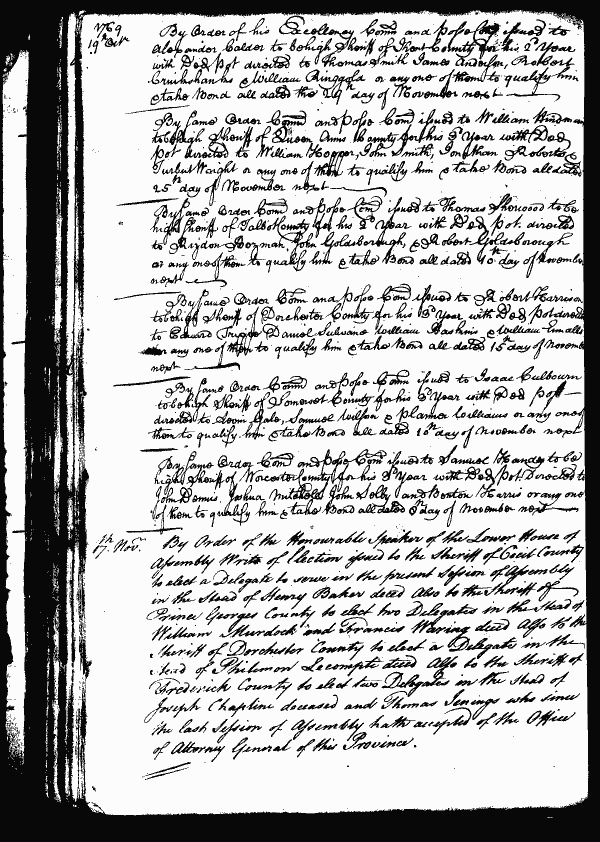 1769
19th Octr
By Order of his Excellency Comn and posse Com issued to
Alexander Calder to be high Sheriff of Kent County for his 2d Year
with Ded Pot directed to Thomas Smith James Anderson, Robert
Cruikshanks & William Ringgold or any one of them to qualify him
& take Bond all dated the 29th day of November next
By same Order Comn and posse Com issued to William Hindman
to be high Sheriff of Queen Anns County for his 3d Year with Ded
Pot directed to William Hopper, John Smith, Jonathan Roberts &
Turbut Wright or any one of them to qualify him & take Bond all dated
25th day of November next
By same Order Comn and posse Com issued to Thomas Sherwood to be
high Sheriff of Talbot County for his 2d Year with Ded Pot. directed
to Risdon Bozman, John Goldsborough, & Robert Goldsborough
or any one of them to qualify him & take Bond all dated 10th day of November
next
By same Order Comn and posse Com issued to Robert Harrison
to be high Sheriff of Dorchester County for his 3d Year with Ded Pot directed
to Edward Daniel Sulivane William Haskins & William Ennalls
or any one of them to qualify him & take Bond all dated 15th day of November
next
By same Order Comn and posse Comn issued to Isaac Culbourn
to be high Sheriff of Somerset County for his 3d Year with Ded Pott
directed to Levin Gale, Samuel Wilson & Planner Williams or any one of
them to qualify him & take Bond all dated 10th day of November next
By same Order Comn and posse Comn issued to Samuel Handy to be
high Sheriff of Worcester County for his 3d Year with Ded Pot. Directed to
John Dennis, Joshua Mitchell John Selby and Benton Harris or any one
of them to qualify him & take Bond all dated 8 day of November next
7th Novr.
By Order of the Honourable Speaker of the Lower House of
Assembly Writs of Election issued to the Sheriff of Cecil County
to elect a Delegate to serve in the present Session of Assembly
in the Stead of Henry Baker deced Also to the Sheriff of
Prince Georges County to elect two Delegates in the Stead of
William Murdock and Francis Waring deced Also to the
Sheriff of Dorchester County to elect a Delegate in the
Stead of Philemon Lecompte deced Also to the Sheriff of
Frederick County to elect two Delegates in the Stead of
Joseph Chapline deceased and Thomas Jenings who since
the last Session of Assembly hath accepted of the Office
of Attorney General of this Province.